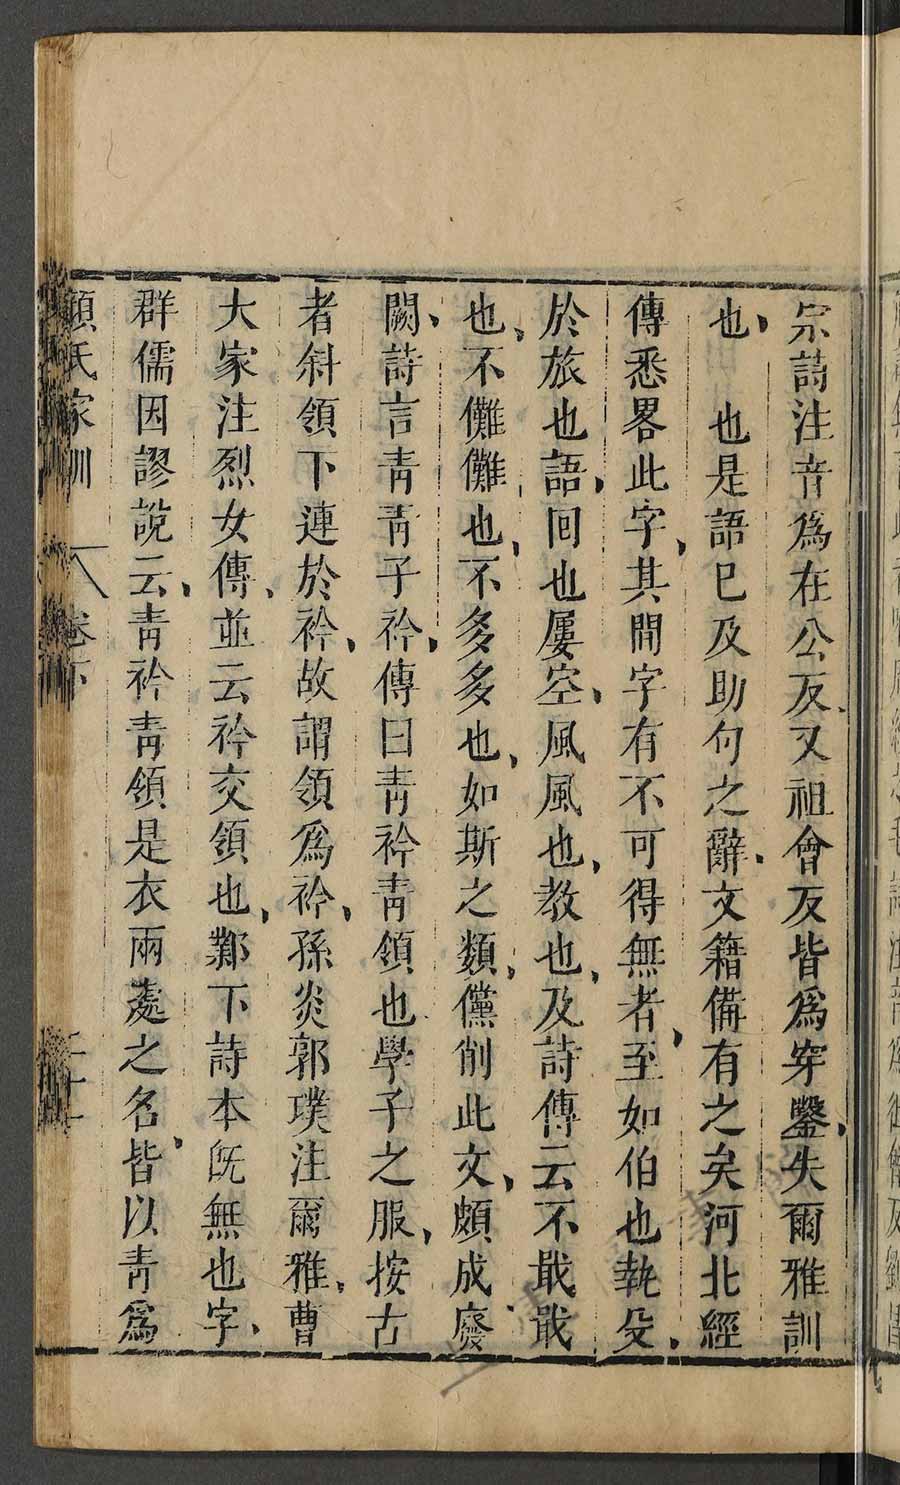 宗詩注音爲在公反又祖會反皆爲穿鑿失爾雅訓
也　也是語已及助句之辭文籍備有之矣河北經
傳悉畧此字其間字有不可得無者至如伯也執殳
於旅也語回也屢空風風也教也及詩傳云不戢戢
也不儺儺也不多多也如斯之類儻削此文頗成廢
闕詩言青青子衿傳曰青衿青領也學子之服按古
者斜領下連於衿故謂領爲衿孫炎郭璞注爾雅曹
大家注烈女傳並云衿交領也鄴下詩本旣無也字
群儒因謬說云青衿青領是衣兩處之名皆以青爲
顏氏家訓　卷下